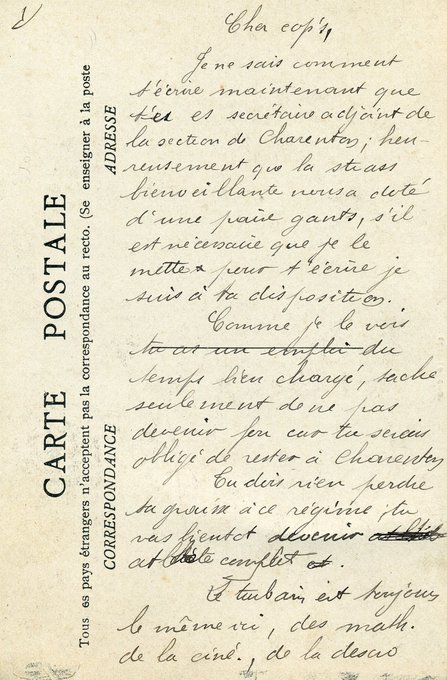 CARTE POSTALE
Tous es pays étrangers n'acceptent pas la correspondance au recto. (Se enseigner à la poste
CORRESPONDANCE
ADRESSE
Cher cop's,
Je ne sais comment
t'écrire maintenant que
t'es es secrétaire adjoint de
la section de Charenton; heu-
reusement que la strass
bienveillante nous a doté
d'une paire gants, s'il
est nécessaire que je le
mette pour t'écrire je
suis à ta disposition.
Comme je le vois
tu as un emploi du
temps bien chargé, tache
seulement de ne pas
devenir fou car tu serais
obligé de rester à Charenton
Tu dois rien perdre
ta graisse à ce régime; tu
vas bientot devenir
complet
Le turbain est toujours
le même ici, des math.
de la ciné., de la descro